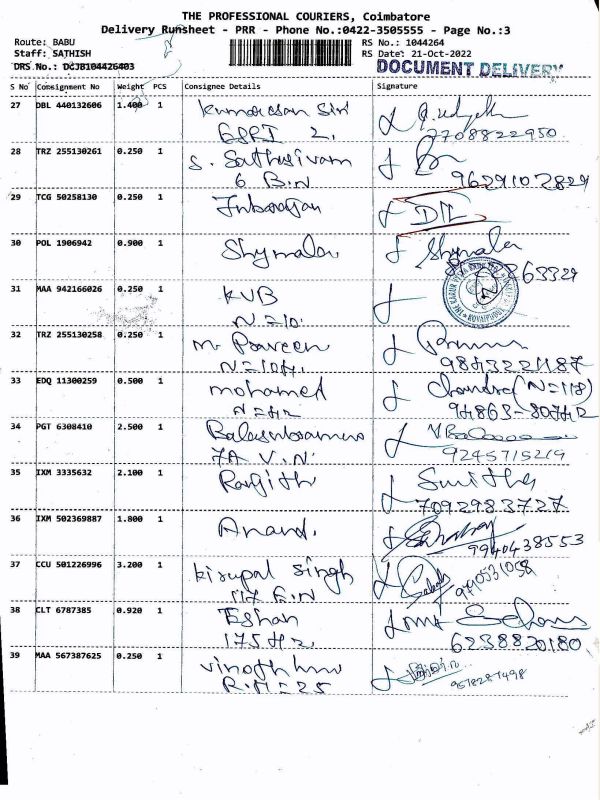 THE PROFESSIONAL COURIERS, Coimbatore
Delivery Runsheet - PRR - Phone No.:0422-3505555 - Page No.:3
Route: BABU RS No.: 1044264
Staff: SATHISH RS Date: 21-Oct-2022
DRS No.: DCJB104426403 DOCUMENT DELIVERY
S No Consignment No Weight PCS Consignee Details Signature
27 DBL 440132606 1.400 1
7708822950
28 TRZ 255130261 0.250 1 S. Sathasivam
6 B.N 9629102829
29 TCG 50258130 0.250 1
30 POL 1906942 0.900 1 Shymala Shymala
63329
31 MAA 942166026 0.250 1 KVB
N=10
32 TRZ 255130258 0.250 1 M. Praveen
9843221187
33 EDQ 11300259 0.500 1 mohamed Chandra (N=118)
N=42 94863-80742
34 PGT 6308410 2.500 1
7A V.N. 9245715219
35 IXM 3335632 2.100 1 Ranjith Smitha
7092983727
36 IXM 502369887 1.800 1 Anand.
9940438553
37 CCU 501226996 3.200 1 kirupal singh
117 E.N
38 CLT 6787385 0.920 1 Eshan
175 H2 6238820180
39 MAA 567387625 0.250 1
R.M=25 9578287498